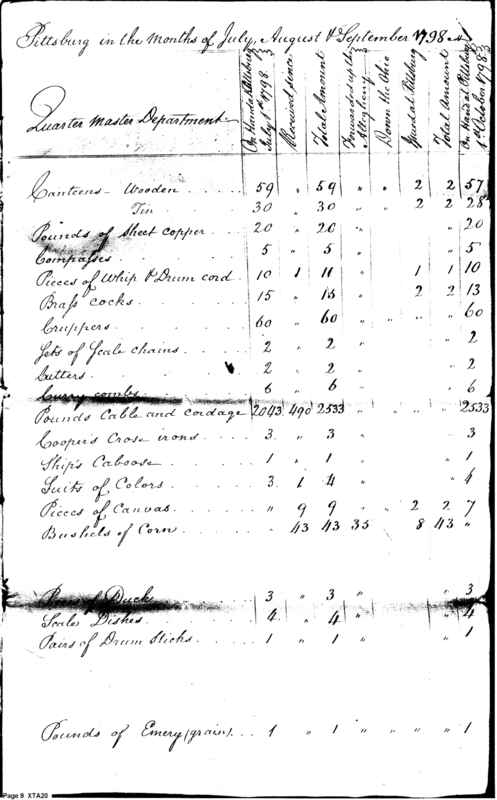 Pittsburg in the Months of July, August & September 1798
Quarter Master Department
On Hand at Pittsburg July 1st 1798.
Received since
Total Amount
Forwarded up the Allegheny
Down the Ohio
Issued at Pittsburg
Total Amount
On Hand at Pittsburg 1st October 1798
Canteens - Wooden . . . . . 59 " 59 " " 2 2 57
Tin . . . . . 30 " 30 " 2 2 28
Pounds of Sheet Copper . . . 20 " 20 " " 20
Compasses . . . . . 5 " 5 " " 5
Pieces of Whip & Drum cord . 10 1 11 " 1 1 10
Brass Cocks . . . . . 15 " 15 " 2 2 13
Cruppers . . . . . 60 " 60 " " " " 60
Sets of Scale chains . . . . 2 " 2 " " 2
Cutters . . . . . 2 " 2 " " 2
Curry combs . . . . . 6 " 6 " " 6
Pounds Cable and cordage 2043 490 2533 " " " " 2533
Cooper's Crose irons . . . . 3 " 3 " 3
Ship's Caboose . . . . 1 " 1 " 1
Suits of Colors . . . . 3 1 4 " " 4
Pieces of Canvas . . . . " 9 9 " 2 2 7
Bushels of Corn . . . . " 43 43 35 8 43 "
of Duck . . . . 3 " 3 " " 3
Scale Dishes . . . . 4 " 4 " " 4
Pairs of Drum Sticks . . . . 1 " 1 " " 1
Pounds of Emery (grain) . . . 1 " 1 " " " " 1
Page 9 XTA20